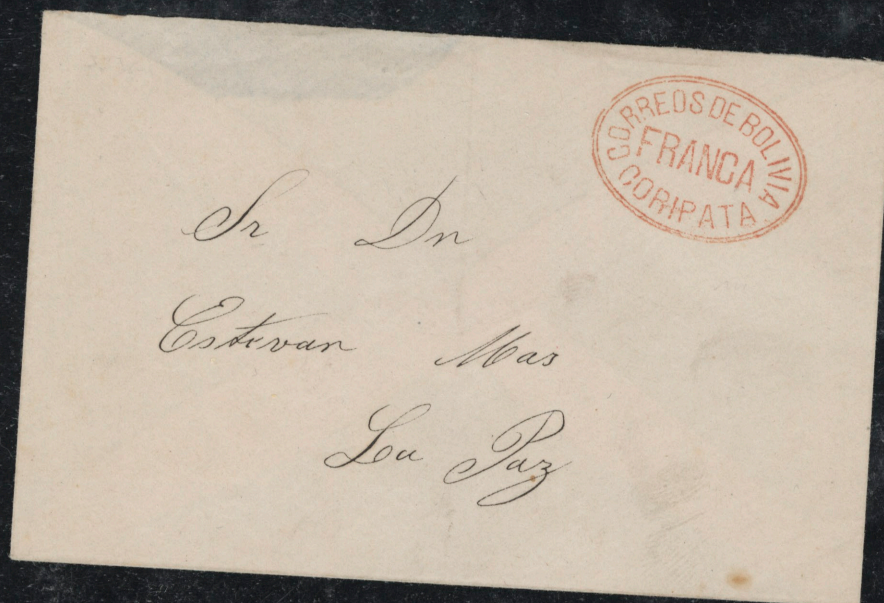 CORREOS DE BOLIVIA
FRANCA
CORIPATA
Sr Dn
Estevan Mas
La Paz